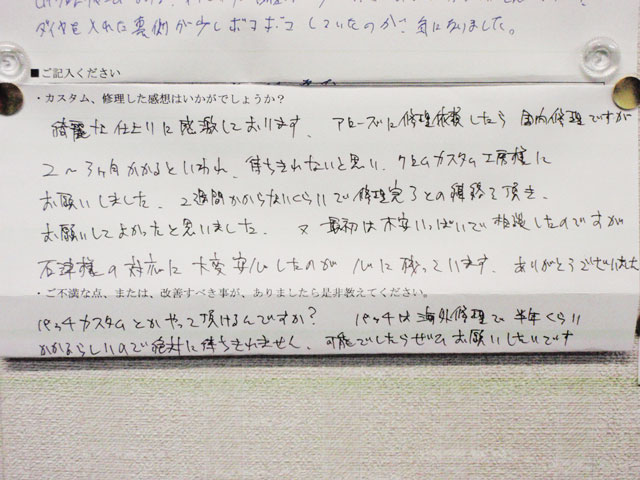 ダイヤを入れた裏側が少しボコボコしていたのが、気になりました。
■ご記入ください
・カスタム、修理した感想はいかがでしょうか?
綺麗な仕上りに感激しております。 アローズに修理依頼したら 国内修理ですが
2〜3ヶ月かかるといわれ、待ちきれないと思い、クロムカスタム工房様に
お願いしました。 2週間かからないくらいで修理完了との連絡を頂き、
お願いしてよかったと思いました。 又 最初は不安いっぱいで相談したのですが
石津様の対応に大変安心したのが 心に残っています。 ありがとうございました
・ご不満な点、または、改善すべき事が、ありましたら是非教えてください。
パッチカスタムとかやって頂けるんですか? パッチは海外修理で半年くらい
かかるらしいので絶対に待ちきれません、可能でしたらぜひお願いしたいです